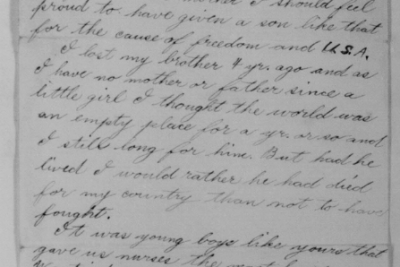 I should feel
proud to have given a son like that
for the cause of freedom and U.S.A.
I lost my brother 4 yr. ago and as
I have no mother or father since a
little girl I thought the world was
an empty place for a yr. or so and
I still long for him. But had he
lived I would rather he had died
for my country than not to have
fought.
It was young boys like yours that
gave us nurses the most